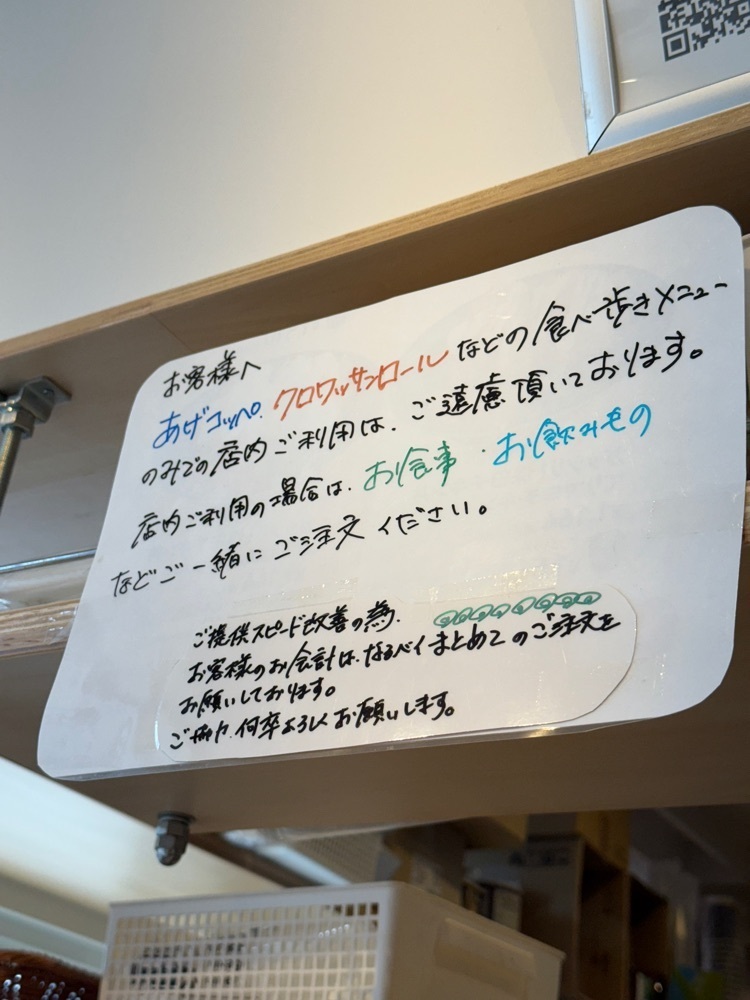 お客様へ
あげコッペ、クロワッサンロールなどの食べ歩きメニュー
のみでの店内ご利用は、ご遠慮頂いております。
店内ご利用の場合は、お食事・お飲みもの
などご一緒にご注文ください。
ご提供スピード改善の為、
お客様のお会計は、なるべくまとめてのご注文を
お願いしております。
ご協力、何卒よろしくお願いします。